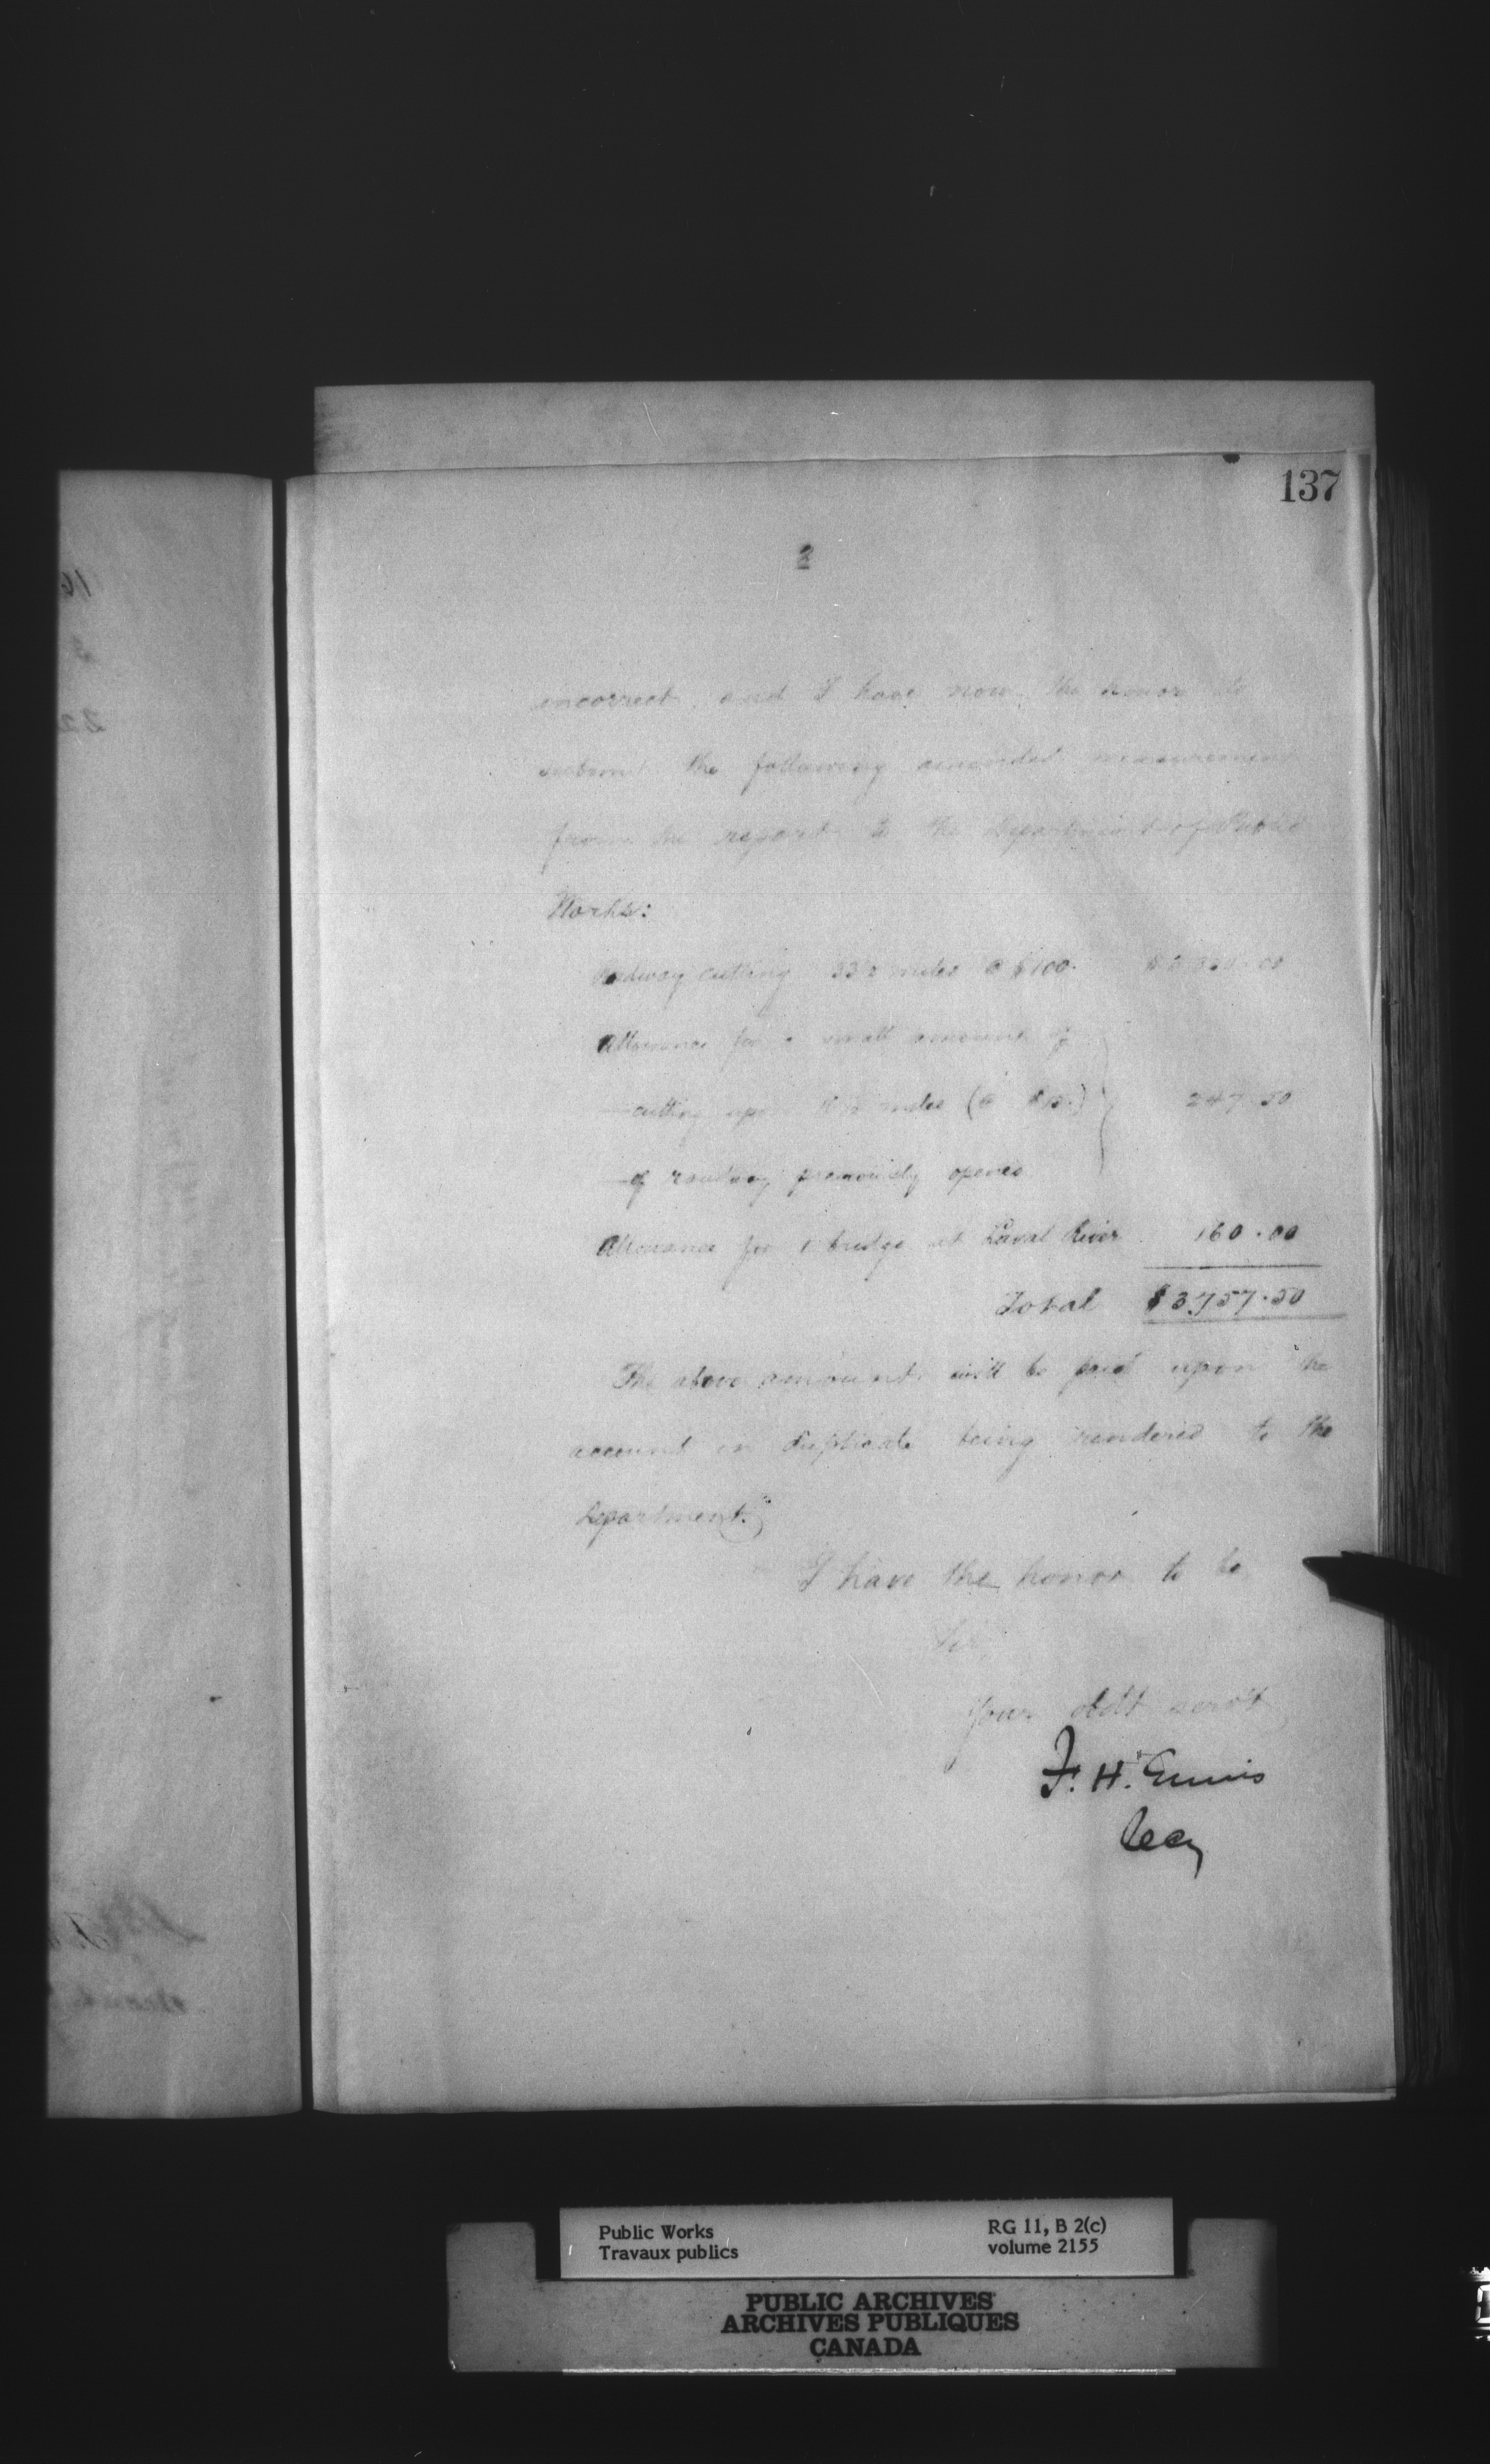 137
2
incorrect, and I have now the honor to
submit the following amended measurement
from the report to the Department of Public
Works:
Roadway cutting 33½ miles @ $100. $3,350.00
Allowance for a small amount of
cutting upon 16½ miles (@ $15.) 247.50
of roadway previously opened
Allowance for 1 bridge at Laval River 160.00
Total $3,757.50
The above amount will be paid upon the
account in duplicate being rendered to the
Department."
I have the honor to be
Sir,
Your obdt servt
F. H. Ennis
Secy
Public Works
Travaux publics
RG 11, B 2(c)
volume 2155
PUBLIC ARCHIVES
ARCHIVES PUBLIQUES
CANADA